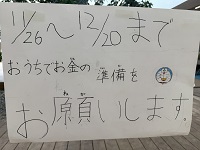 11/26～12/20まで
おうちでお釜の準備を
お願いします。